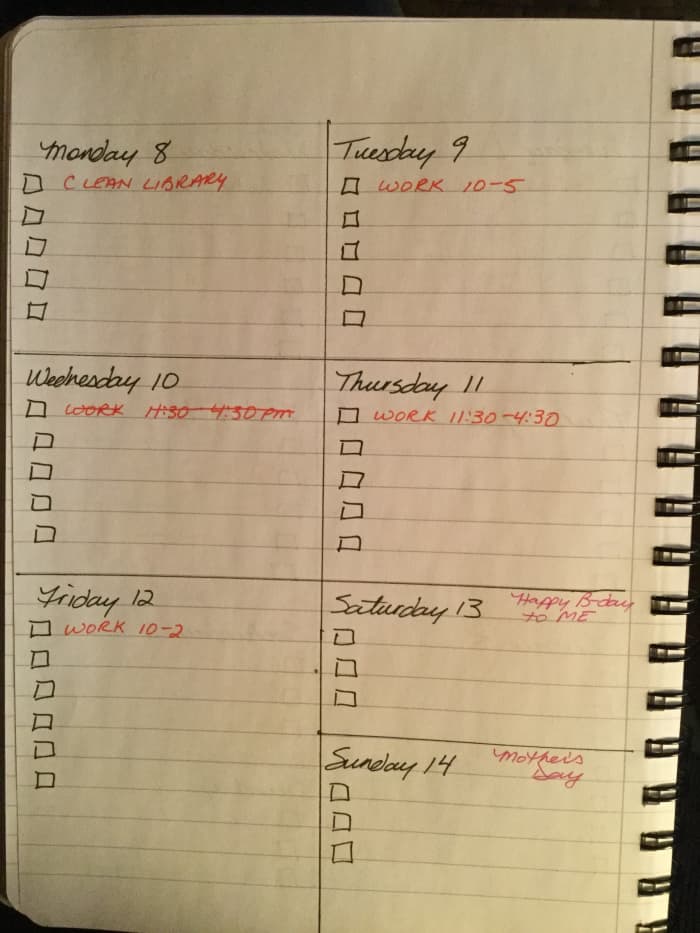 Monday 8
CLEAN LIBRARY
Tuesday 9
WORK 10-5
Wednesday 10
WORK 11:30-4:30 pm
Thursday 11
WORK 11:30-4:30
Friday 12
WORK 10-2
Saturday 13
Happy B-day
to ME
Sunday 14
Mother's
Day